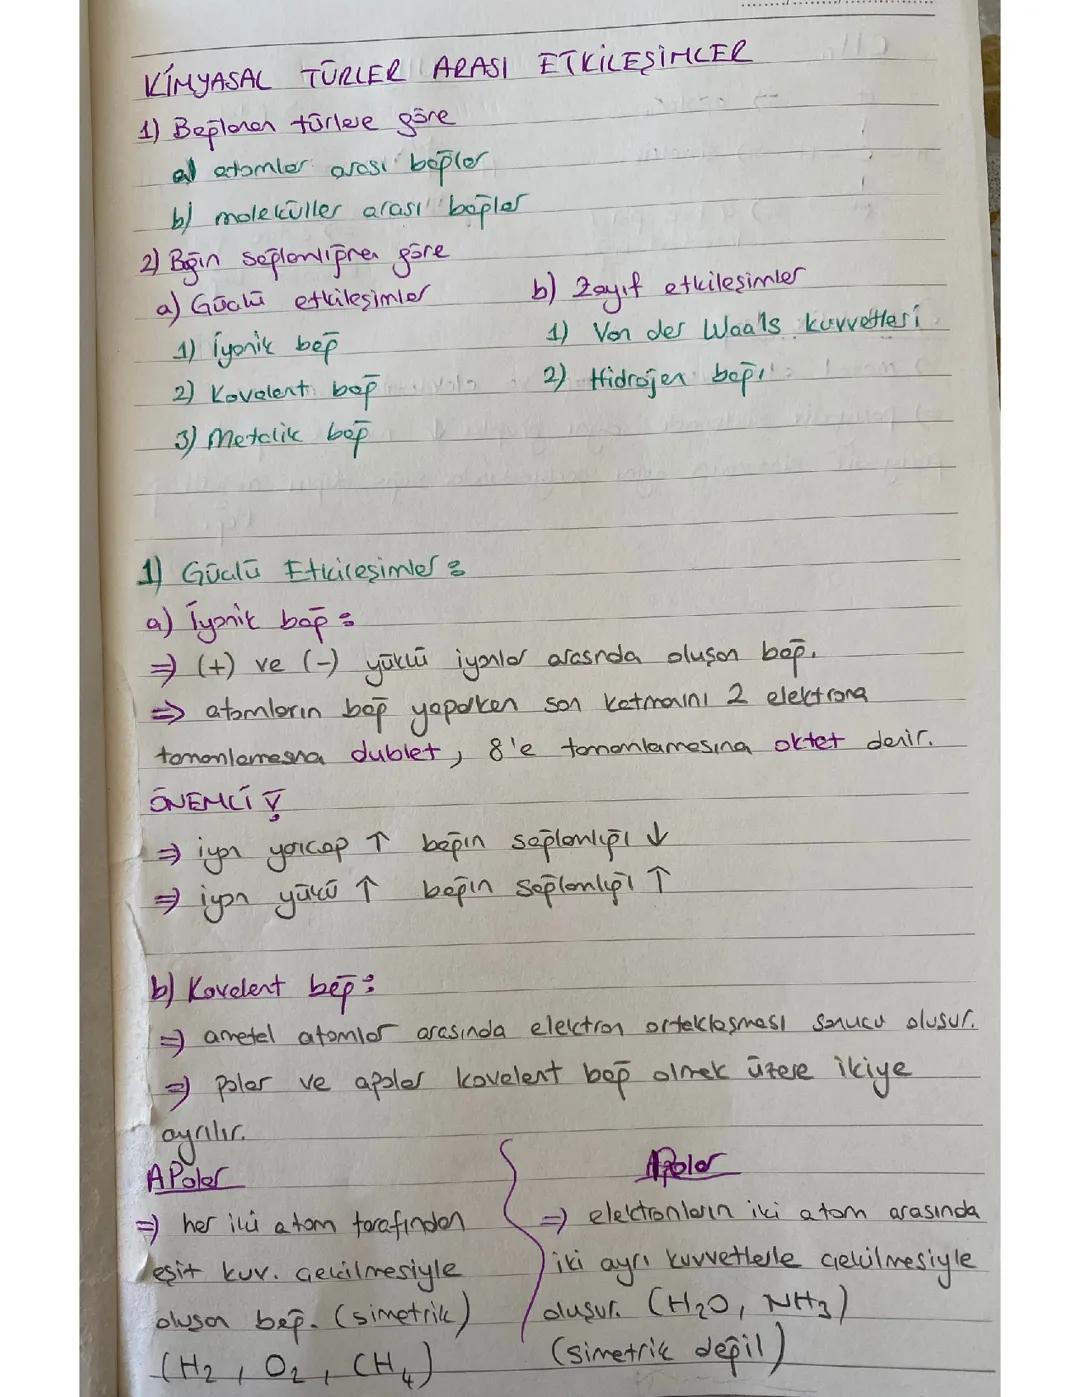 KİMYASAL TÜRLER ARASI ETKİLEŞİMLER
1) Bağlanan türlere göre
a) atomlar arası bağlar
b) moleküller arası bağlar
2) Bğın sağlamlığına göre
a) Güçlü etkileşimler
1) İyonik bağ
2) Kovalent bağ
3) Metalik bağ
b) Zayıf etkileşimler
1) Van der Waals kuvvetleri
2) Hidrojen bağı
1) Güçlü Etkileşimler :
a) İyonik bağ :
⇒ (+) ve (-) yüklü iyonlar arasında oluşan bağ.
⇒ atomların bağ yaparken son katmanını 2 elektrona
tamamlamasına dublet, 8'e tamamlamasına oktet denir.
ÖNEMLİ !
⇒ iyon yarıçap ↑ bağın sağlamlığı ↓
⇒ iyon yükü ↑ bağın sağlamlığı ↑
b) Kovalent bağ :
⇒ ametal atomlar arasında elektron ortaklaşması sonucu oluşur.
⇒ polar ve apolar kovalent bağ olmak üzere ikiye
ayrılır.
APolar
⇒ her iki atom tarafından
eşit kuv. çekilmesiyle
oluşan bağ. (simetrik)
(H2, O2, CH4)
Polar
⇒ elektronların iki atom arasında
iki ayrı kuvvetlerle çekilmesiyle
oluşur. (H2O, NH3)
(simetrik değil)